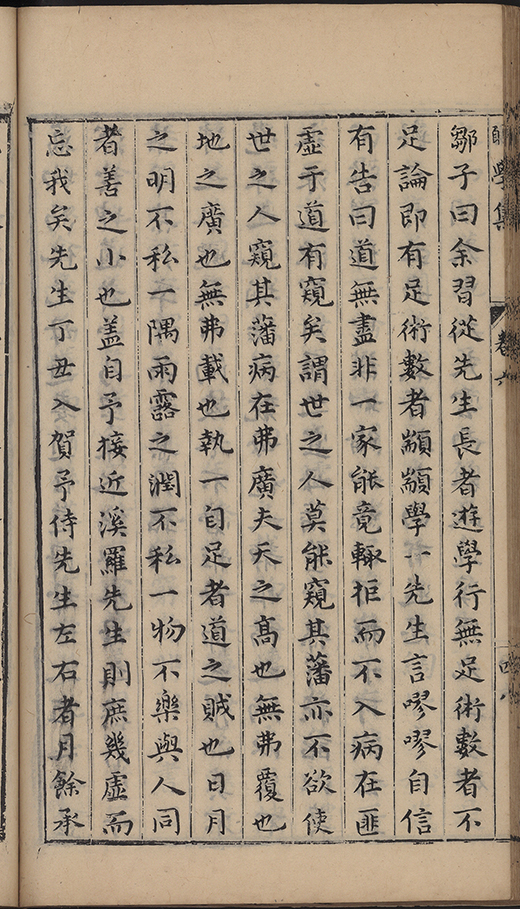 學集 卷六
鄒子曰余習從先生長者遊學行無足術數者不
足論即有足術數者顓顓學一先生言嘐嘐自信
有告曰道無盡非一家能竟輙拒而不入病在匪
虛于道有窺矣謂世之人莫能窺其藩亦不欲使
世之人窺其藩病在弗廣夫天之高也無弗覆也
地之廣也無弗載也執一自足者道之賊也日月
之明不私一隅雨露之潤不私一物不樂與人同
者善之小也盖自予接近溪羅先生則庶幾虛而
忘我矣先生丁丑入賀予侍先生左右者月餘承